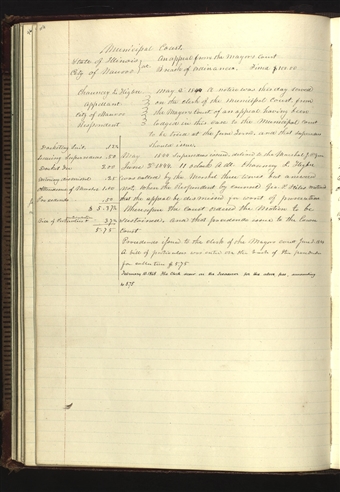 Municipal Court
State of Illinois An appeal from the Mayors Court
City of Nauvoo Breach of Ordinance. Fined $100.00
Chauncy L. Higbee May 1844 A notice was this day served
Appellant on the Clerk of the Municipal Court, from
City of Nauvoo the Mayors Court of an appeal having been
Respondent lodged in this case to the Municipal Court
to be tried at the June Term, and that supoenas
should issue.
Docketing Suit .12½
Issuing Supoenas May 1844 Supoenas issued, delivered to the Marshal
Docket Fee 2.00 June 3d 1844. 11 o'clock A.M. Chauncy L. Higbee
Entering .25 was called by the Marshal three times but answered
Attendance of Marshal 1.00 not, when the Respondent by counsel Geo. P. Stiles
the appeal be dismissed for want of prosecution
$ 5.37½ Therefore the Court ordered the Motion to be
Fee of .37½ sustained, and that procedendo issue to the lower
5.75 Court
Procedendo issued to the clerk of the Mayors court June 3, 1844
A bill of particulars was noted on the back of the procedendo
for collection $5.75
February 10 1845. The Clerk drew on the Treasurer for the above fees, amounting
to $75